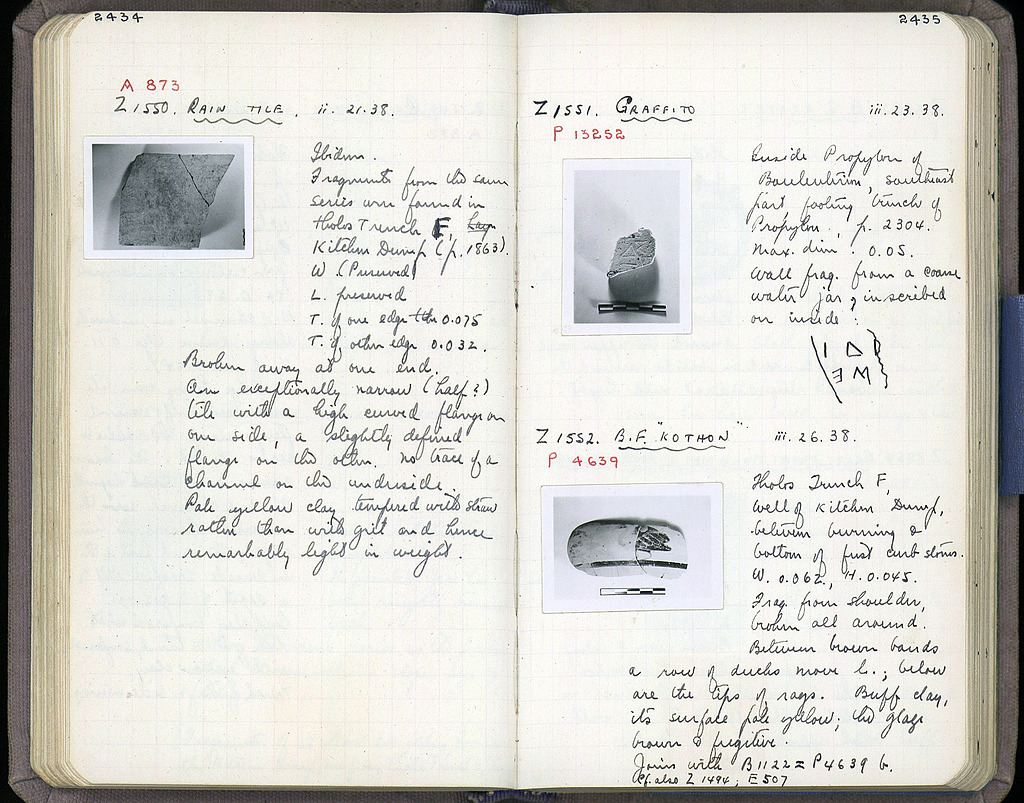 2434
A 873
Z 1550. RAIN TILE. ii. 21.38.
Ibidem.
Fragments from the same
series were found in
Tholos Trench F,
Kitchen Dump (p. 1863).
W. (Preserved)
L. preserved
T. of one edge 0.075
T. of other edge 0.032.
Broken away at one end.
An exceptionally narrow (half?)
tile with a high curved flange on
one side, a slightly defined
flange on the other. No trace of a
channel on the underside.
Pale yellow clay tempered with straw
rather than with grit and hence
remarkably light in weight.
2435
Z 1551. GRAFFITO iii. 23. 38.
P 13252
Inside Propylon of
Bouleuterion, southeast
part footing trench of
Propylon., p. 2304.
Max. dim. 0.05.
Wall frag. from a coarse
water jar, inscribed
on inside:
Z 1552. B.F. "KOTHON" iii. 26. 38.
P 4639
Tholos Trench F,
well of Kitchen Dump,
between burning &
bottom of first curb stones.
W. 0.062, H. 0.045.
Frag. from shoulder,
broken all around.
Between brown bands
a row of ducks move l.; below
are the tips of rays. Buff clay,
its surface pale yellow; the glaze
brown & fugitive.
Joins with B1122 = P4639 b.
Cf. also Z 1494; E 507